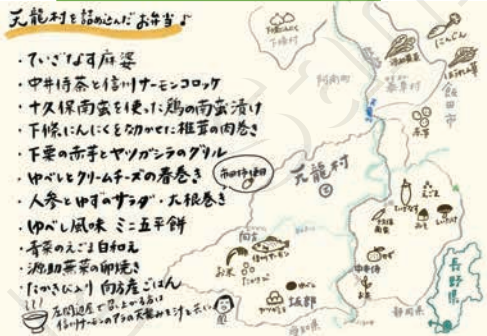 天龍村を詰め込んだお弁当♪
・ていざなす麻婆
・中井侍茶と信州サーモンコロッケ
・十久保南蛮を使った鶏の南蛮漬け
・下條にんにくを効かせた椎茸の肉巻き
・下栗の赤芋とヤツガシラのグリル
・ゆべしとクリームチーズの春巻き
・人参とゆずのサラダ・大根巻き
・ゆべし風味 ミニ五平餅
・青菜のえごま白和え
・源助蕪菜の卵焼き
・たかきび入り 向方産ごはん
信州サーモンのアラの
下條にんにく
下條村
阿南町
源助蕪菜
泰阜村
にんじん
ほうれん草
飯田市
赤芋
市田柿使用
天龍村
向方
お米
信州サーモン
たかきび
ゆべし
ヤツガシラ
坂部
ていざなす
えごま
十久保南蛮
みそ
しいたけ
ゆず
中井侍
お茶
愛知県
静岡県
長野県